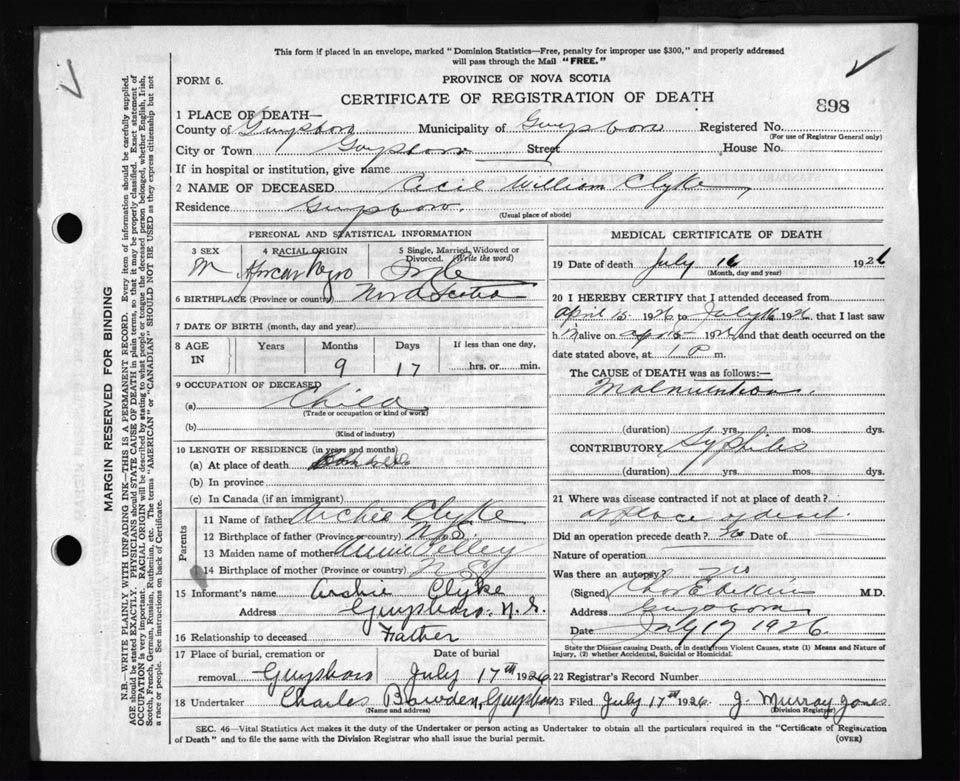 This form if placed in an envelope, marked "Dominion Statistics—Free, penalty for improper use $300," and properly addressed
will pass through the Mail "FREE."
FORM 6.
PROVINCE OF NOVA SCOTIA
CERTIFICATE OF REGISTRATION OF DEATH
898
1 PLACE OF DEATH—
County of Guysboro Municipality of Guysboro Registered No.
(For use of Registrar General only)
City or Town Guysboro Street House No.
If in hospital or institution, give name
2 NAME OF DECEASED Cecil William Clyke
Residence Guysboro.
(Usual place of abode)
PERSONAL AND STATISTICAL INFORMATION
3 SEX M
4 RACIAL ORIGIN African Negro
5 Single, Married, Widowed or Divorced. (Write the word) Single
6 BIRTHPLACE (Province or country) Nova Scotia
7 DATE OF BIRTH (month, day and year)
8 AGE IN Years Months 9 Days 17 If less than one day, hrs. or min.
9 OCCUPATION OF DECEASED
(a) Child
(Trade or occupation or kind of work)
(b)
(Kind of industry)
10 LENGTH OF RESIDENCE (in years and months)
(a) At place of death
(b) In province
(c) In Canada (if an immigrant)
Parents
11 Name of father Archie Clyke
12 Birthplace of father (Province or country) N.S.
13 Maiden name of mother Kelley
14 Birthplace of mother (Province or country) N S
15 Informant's name Archie Clyke
Address Guysboro. N.S.
16 Relationship to deceased Father
17 Place of burial, cremation or removal Guysboro Date of burial July 17th 1926
18 Undertaker Charles Bowden, Guysboro
(Name and address)
MEDICAL CERTIFICATE OF DEATH
19 Date of death July 16 1926
(Month, day and year)
20 I HEREBY CERTIFY that I attended deceased from
April 15 1926 to July 16 1926 that I last saw
h m alive on Ap 15 1926 and that death occurred on the
date stated above, at 1 P m.
The CAUSE of DEATH was as follows:—
Malnutrition.
(duration) yrs. mos. dys.
CONTRIBUTORY Syphilis
(duration) yrs. mos. dys.
21 Where was disease contracted if not at place of death?
at place of death.
Did an operation precede death? No Date of
Nature of operation
Was there an autopsy? no
(Signed) M.D.
Address Guysboro
Date July 17 1926.
State the Disease causing Death, or in death from Violent Causes, state (1) Means and Nature of
Injury, (2) whether Accidental, Suicidal or Homicidal.
22 Registrar's Record Number
23 Filed July 17th 1926 J. Murray Jones
(Division Registrar)
SEC. 46—Vital Statistics Act makes it the duty of the Undertaker or person acting as Undertaker to obtain all the particulars required in the "Certificate of Registration
of Death" and to file the same with the Division Registrar who shall issue the burial permit. (OVER)
MARGIN RESERVED FOR BINDING
N.B.—WRITE PLAINLY WITH UNFADING INK—THIS IS A PERMANENT RECORD. Every item of information should be carefully supplied.
AGE should be stated EXACTLY. PHYSICIANS should STATE CAUSE OF DEATH in plain terms, so that it may be properly classified. Exact statement of
OCCUPATION is very important. RACIAL ORIGIN will be described by stating to what people or tongue the deceased person belonged, whether English, Irish,
Scotch, French, German, Russian, Ruthenian, etc. The terms "AMERICAN" or "CANADIAN" SHOULD NOT BE USED as they express citizenship but not
a race or people. See instructions on back of Certificate.